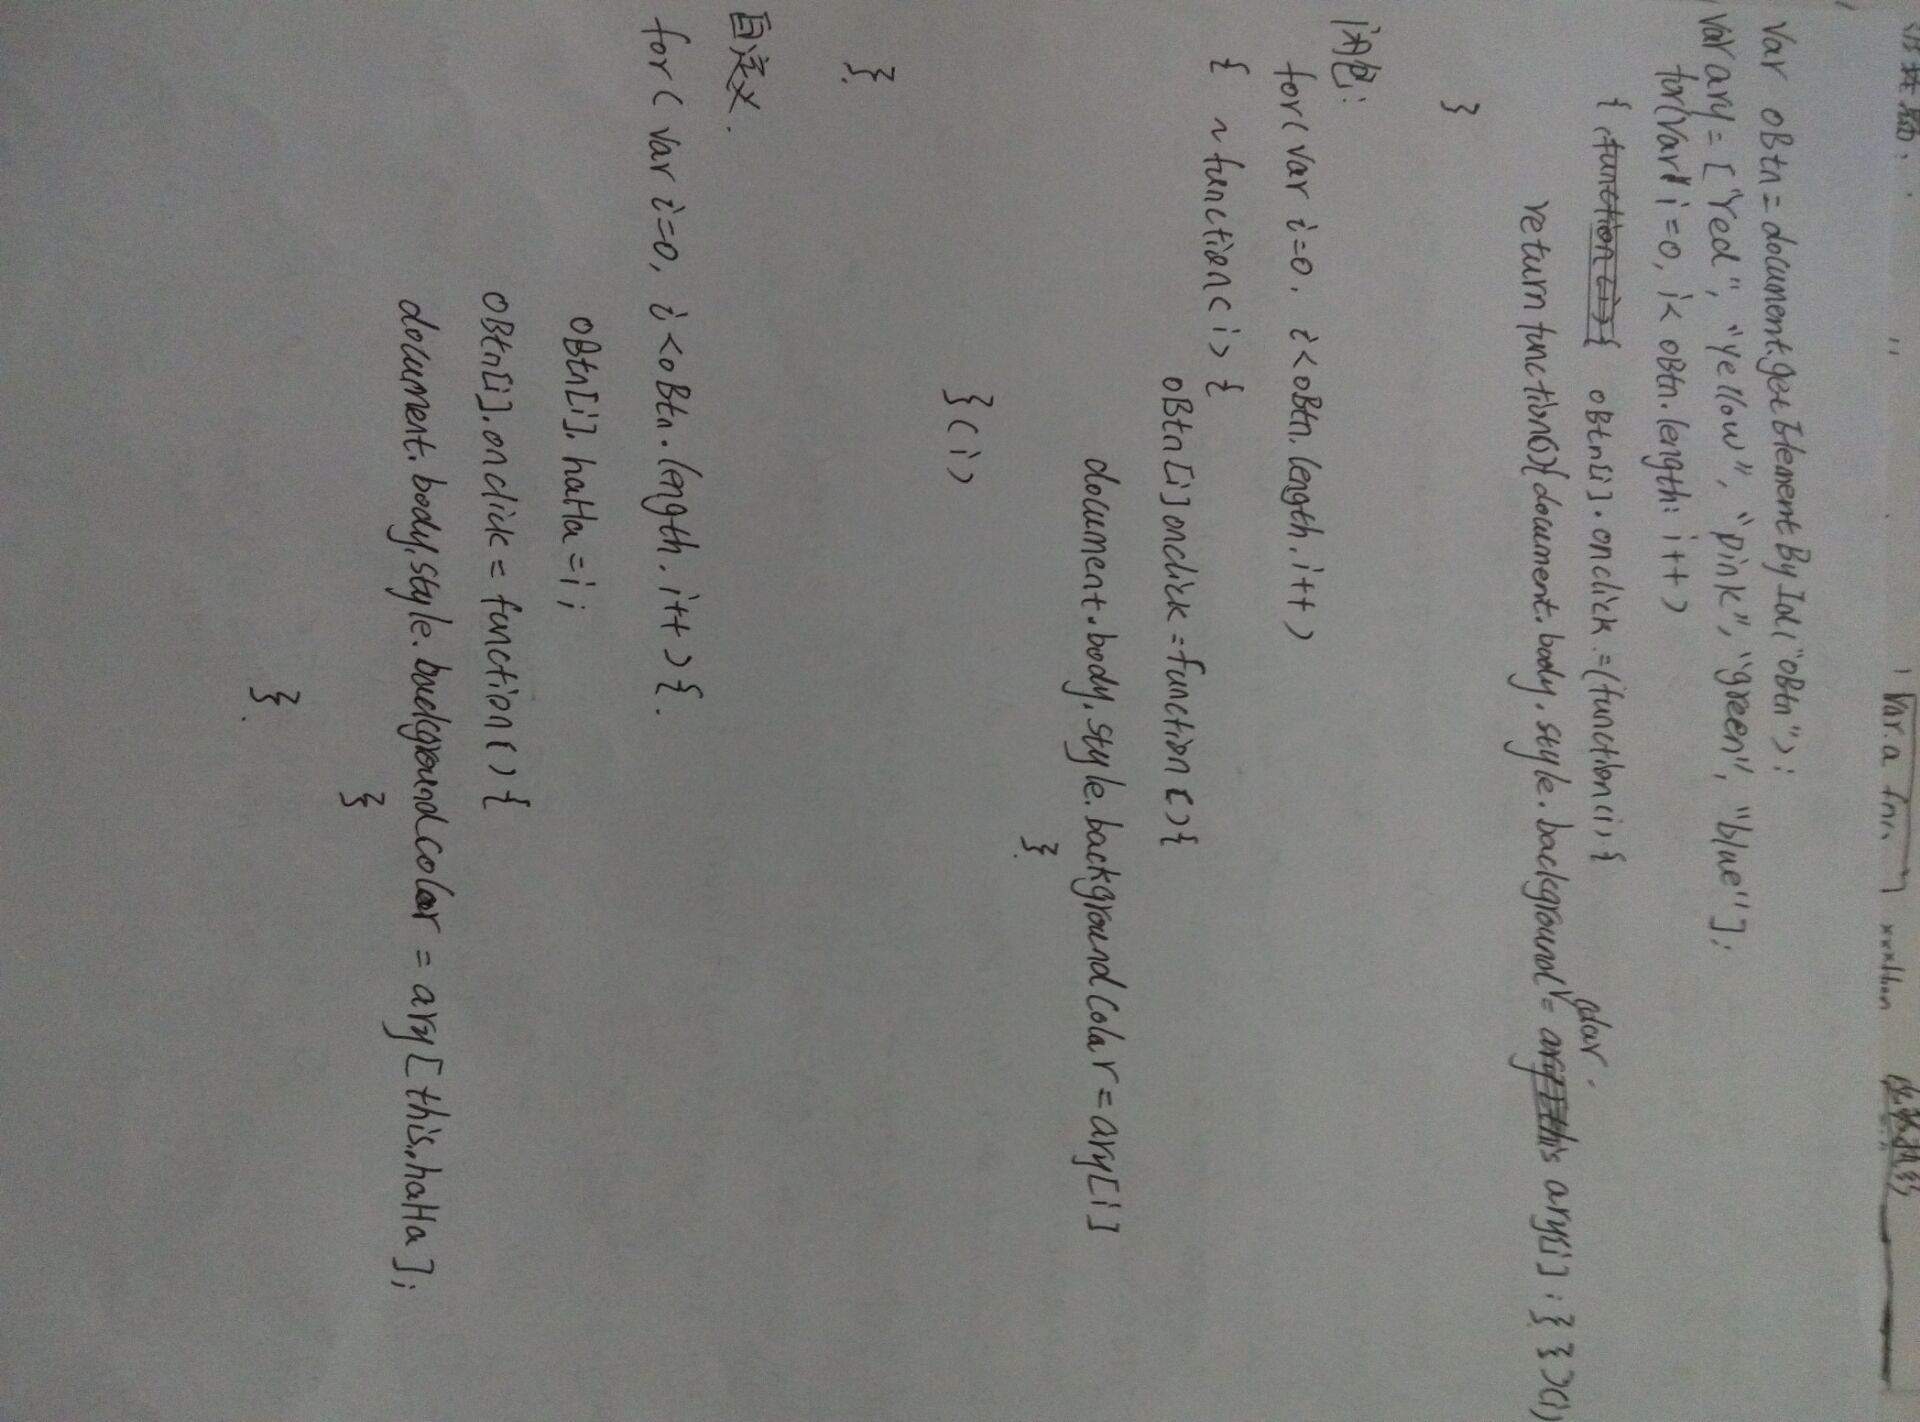 Var oBtn = document.getElementById("oBtn");
Var ary = ["red", "yellow", "pink", "green", "blue"];
for(Var i=0, i< oBtn.length; i++)
{ oBtn[i].onclick =(function(i){
return function(i){document.body.style.background color = ary[i] ; } })(i)
}
闭包:
for( var i=0. i<oBtn.length. i++)
{ ~function(i){
oBtn[i]onclick =function(){
document.body.style.backgroundColar = ary[i]
}.
}(i)
}.
自定义.
for( Var i=0, i<oBtn.length. i++){.
oBtn[i].haHa = i;
oBtn[i].onclick = function(){
document.body.style.backgroundColor = ary[this.haHa];
}
}.